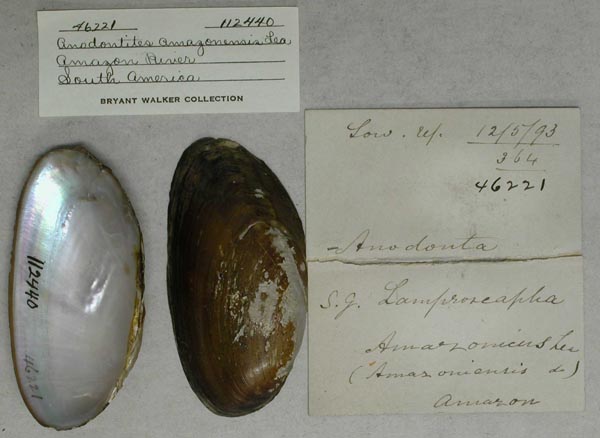 46221 112440
Anodontites Amazonensis Lea
Amazon River
South America
BRYANT WALKER COLLECTION
112440
46221
Low. 12/5/93
364
46221
Anodonta
S.G. Lamproscapha
Amazonicus Lea
(Amazoniensis do)
Amazon